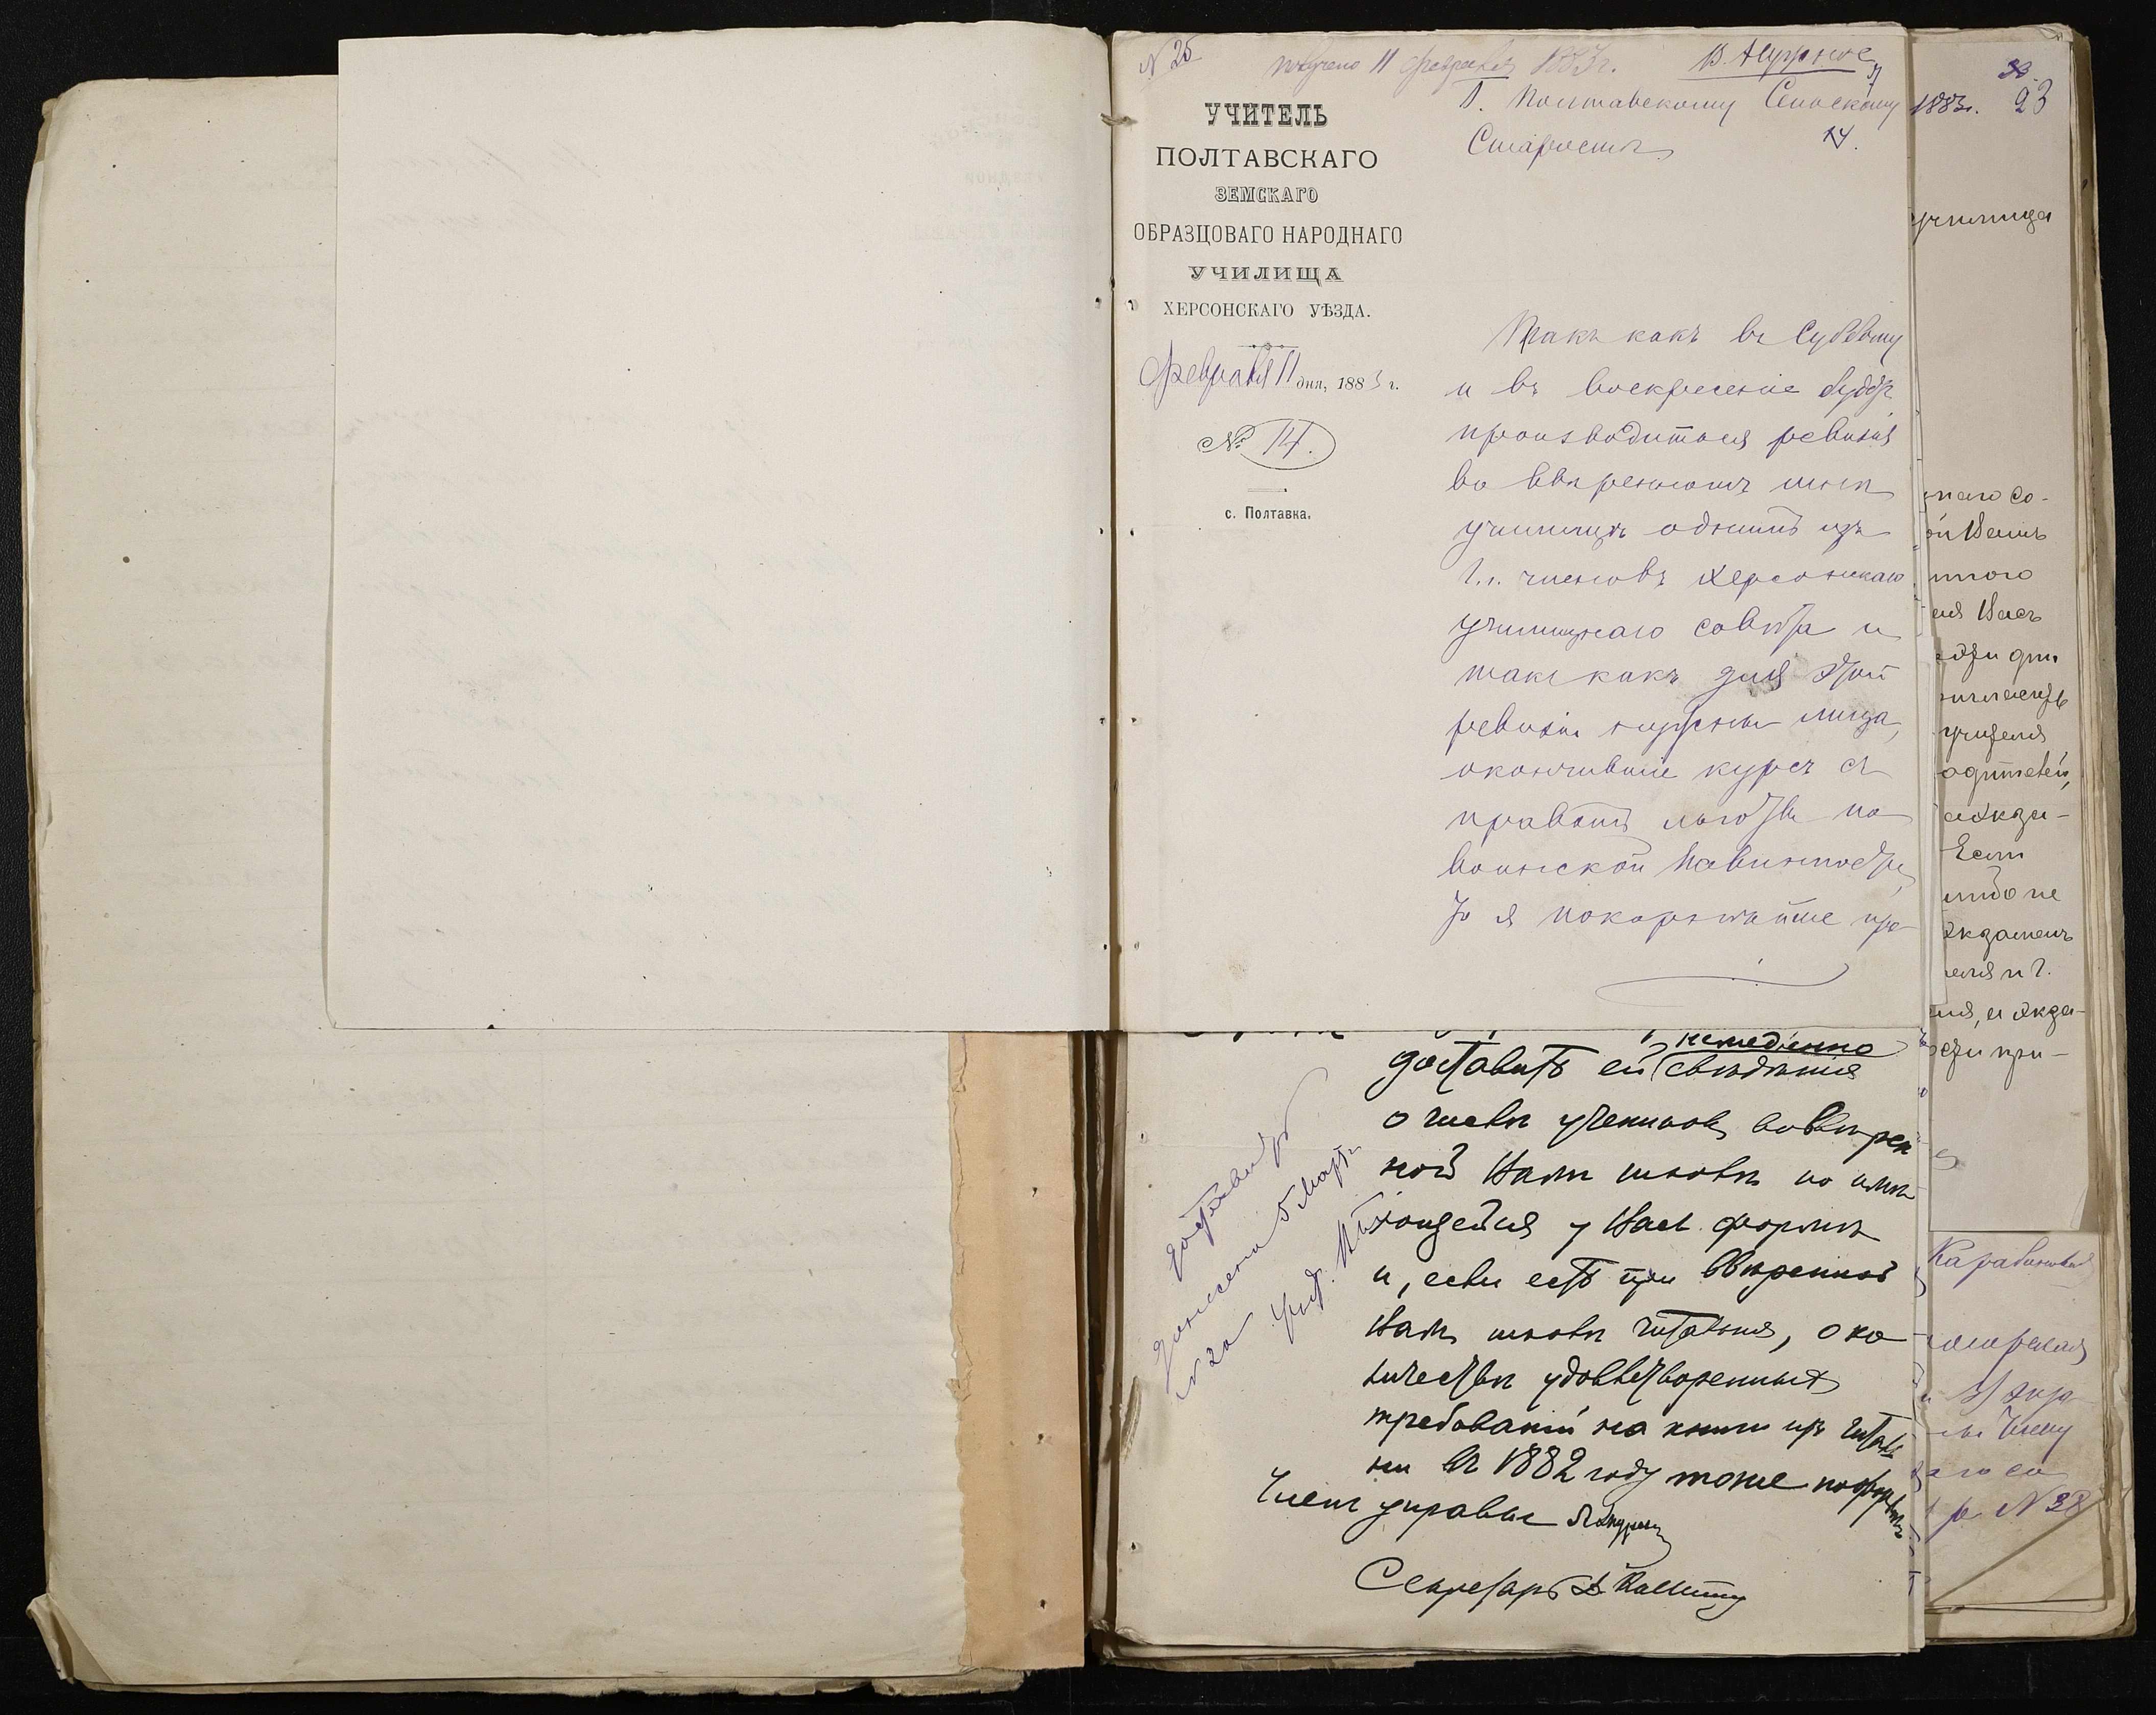 N 25
получено 11 февраля 1883 г.
В. Нужное
УЧИТЕЛЬ
ПОЛТАВСКАГО
ЗЕМСКАГО
ОБРАЗЦОВАГО НАРОДНАГО
УЧИЛИЩА
ХЕРСОНСКАГО УѢЗДА.
Февраля 11 дня, 1883 г.
№ 14.
с. Полтавка.
Г. Полтавскому Сельскому
Старостѣ
14.
Такъ какъ въ Субботу
и въ воскресеніе будетъ
производиться ревизія
во ввѣренномъ мнѣ
училищѣ однимъ изъ
г.г. членовъ Херсонскаго
училищнаго совѣта и
такъ какъ для этой
ревизіи нужны лица,
окончившіе курсъ съ
правомъ льготы по
воинской повинности,
то я покорнѣйше про-
немедленно
доставить ей свѣдѣнія
о числѣ учениковъ во ввѣрен
ной Вамъ школѣ по имѣ
ющейся у Васъ формѣ
и, если есть при ввѣренной
Вамъ школѣ читальня, о ко
личествѣ удовлетворенныхъ
требованій на книги изъ читаль
ни въ 1882 году тоже по формѣ
Членъ управы
Секретарь
доставить
донесено 5 Марта
N 20
1883г. 23
училища
наго со-
ой Вамъ
нного
ля Васъ
учителя
одителей,
Если
либо не
экзаменъ
еля и г.
ля, и экза-
сти при-
Члену
N 38